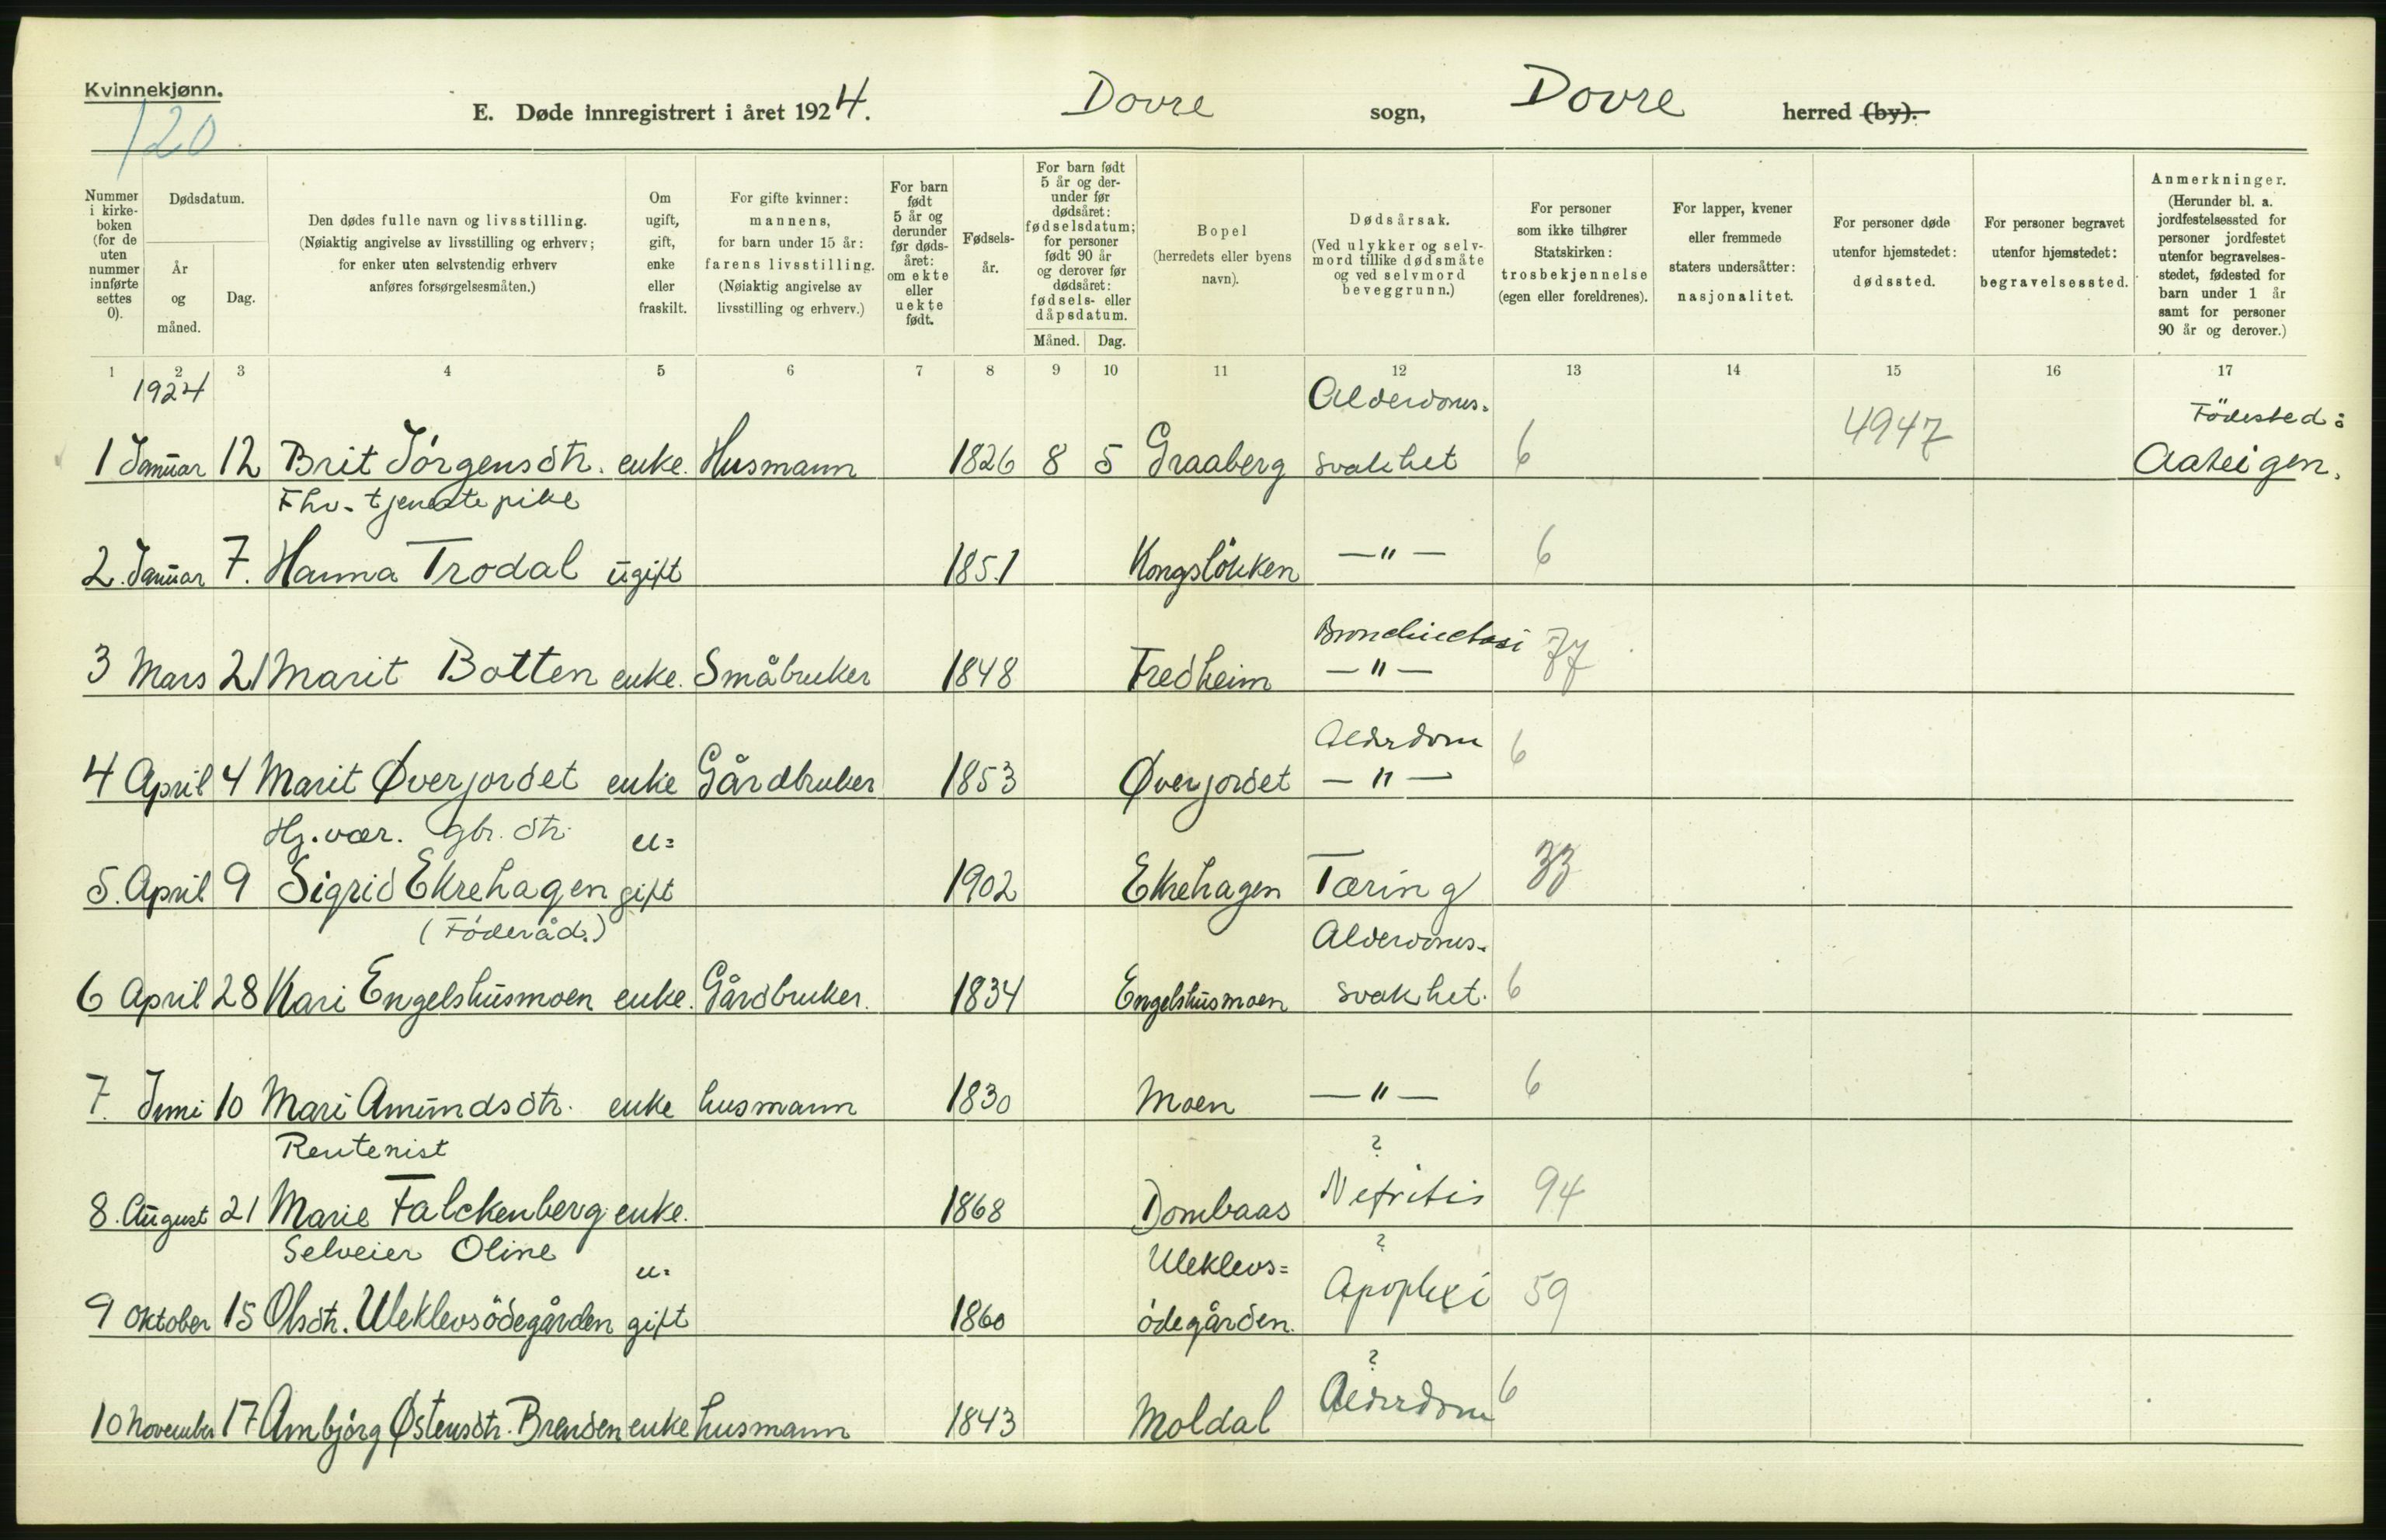 Kvinnekjønn.
120
E. Døde innregistrert i året 1924. Dovre sogn, Dovre herred (by).
Nummer i kirkeboken (for de uten nummer innførte settes 0).
Dødsdatum.
År og måned.
Dag.
Den dødes fulle navn og livsstilling. (Nøiaktig angivelse av livsstilling og erhverv; for enker uten selvstendig erhverv anføres forsørgelsesmåten.)
Om ugift, gift, enke eller fraskilt.
For gifte kvinner: mannens, for barn under 15 år: farens livsstilling. (Nøiaktig angivelse av livsstilling og erhverv.)
For barn født 5 år og derunder før dødsåret: om ekte eller uekte født.
Fødselsår.
For barn født 5 år og derunder før dødsåret: fødselsdatum; for personer født 90 år og derover før dødsåret: fødsels- eller dåpsdatum.
Måned. Dag.
Bopel (herredets eller byens navn).
Dødsårsak. (Ved ulykker og selvmord tillike dødsmåte og ved selvmord beveggrunn.)
For personer som ikke tilhører Statskirken: trosbekjennelse (egen eller foreldrenes).
For lapper, kvener eller fremmede staters undersåtter: nasjonalitet.
For personer døde utenfor hjemstedet: dødssted.
For personer begravet utenfor hjemstedet: begravelsessted.
Anmerkninger. (Herunder bl. a. jordfestelsessted for personer jordfestet utenfor begravelsesstedet, fødested for barn under 1 år samt for personer 90 år og derover.)
1 2 3 4 5 6 7 8 9 10 11 12 13 14 15 16 17
1924 Alderdoms- Födested:
1 Januar 12 Brit Jörgensdtr. enke. Husmann 1826 8 5 Graaberg svakhet 6 4947
Fhv. tjenestepike
2. Januar 7. Hanna Trodal ugift 1851 Kongslökken —"— 6
Bronchiectasi
3 Mars 21 Marit Botten enke. Småbruker 1848 Fredheim —"— 77
Alderdom
4 April 4 Marit Øverjordet enke Gårdbruker 1853 Øverjordet —"— 6
Hj.vær. gbr. dtr. u=
5. April 9 Sigrid Ekrehagen gift 1902 Ekrehagen Tæring 33
(Föderåd.) Alderdoms-
6 April 28 Kari Engelshusmoen enke. Gårdbruker. 1834 Engelshusmoen svakhet. 6
7. Juni 10 Mari Amundsdtr. enke husmann 1830 Moen —"— 6
Rentenist ?
8. August 21 Marie Falckenberg enke. 1868 Dombaas Nefritis 94
Selveier Oline u= Uleklevs= ?
9 Oktober 15 Olsdtr. Uleklevsödegården gift 1860 ödegården. Apoplexi 59
?
10 November 17 Ambjörg Østensdtr. Brenden enke husmann 1843 Moldal Alderdom 6